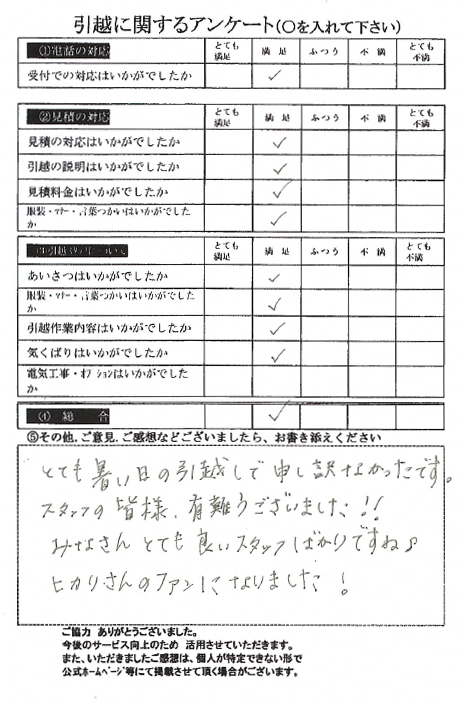 引越に関するアンケート(〇を入れて下さい)
①電話の対応 とても満足 満足 ふつう 不満 とても不満
受付での対応はいかがでしたか ✓
②見積の対応 とても満足 満足 ふつう 不満 とても不満
見積の対応はいかがでしたか ✓
引越の説明はいかがでしたか ✓
見積料金はいかがでしたか ✓
服装・マナー・言葉つかいはいかがでしたか ✓
とても満足 満足 ふつう 不満 とても不満
あいさつはいかがでしたか ✓
服装・マナー・言葉つかいはいかがでしたか ✓
引越作業内容はいかがでしたか ✓
気くばりはいかがでしたか ✓
電気工事・オプションはいかがでしたか
④ 総 合 ✓
⑤その他、ご意見、ご感想などございましたら、お書き添えください
とても暑い日の引越しで申し訳なかったです。
スタッフの皆様、有難うございました!!
みなさんとても良いスタッフばかりですね♪
ヒカリさんのファンになりました!
ご協力 ありがとうございました。
今後のサービス向上のため 活用させていただきます。
また、いただきましたご感想は、個人が特定できない形で
公式ホームページ等にて掲載させて頂く場合がございます。